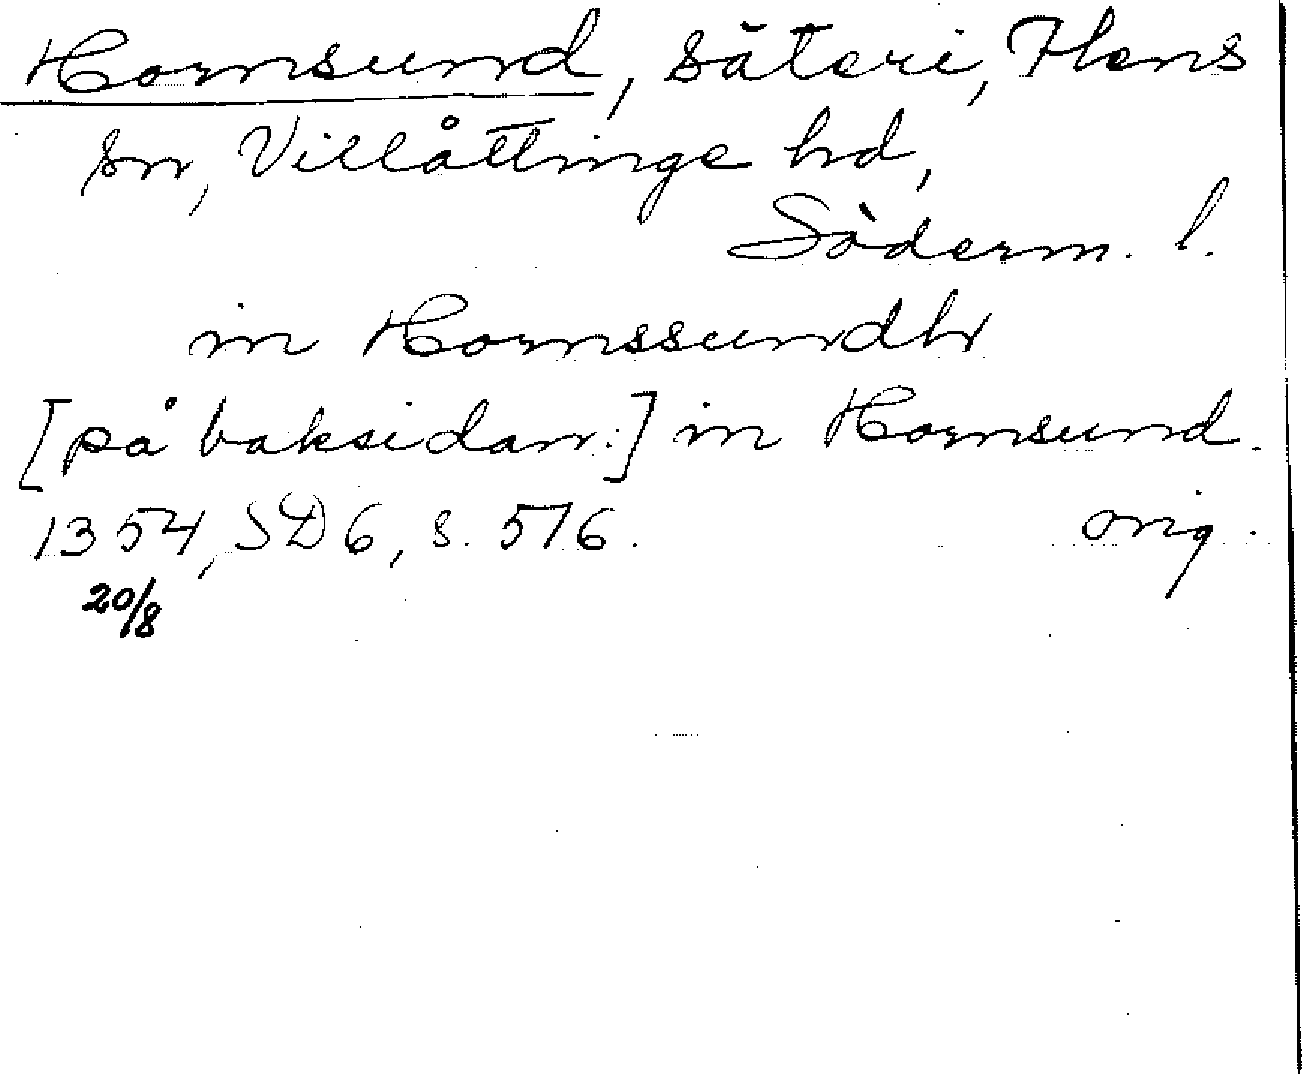 Hornsund, säteri, Flens
sn, Villåttinge hd,
Söderm. l.
in Hornssundh
[på baksidan:] in Hornsund.
1354, SD 6, s. 516. orig.
20/8